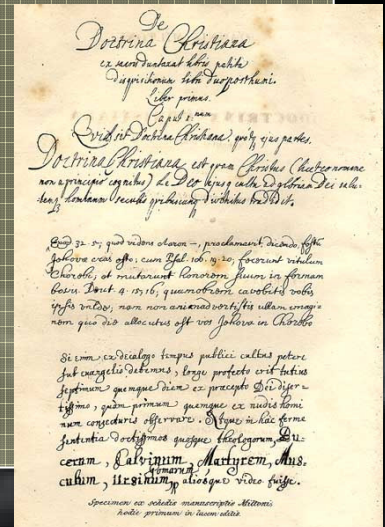 De
Doctrina Christiana
ex sacris duntaxat libris petita
disquisitionum libri duo posthumi.
Liber primus.
Caput 1.
Quid sit Doctrina Christiana, ejus partes.
Doctrina Christiana est quam Christus (licet eo nomine
non a principio cognitus) de Deo cultu ad gloriam Dei salu-
hominum seculis divinitus tradidit.
32. 5, quod videns Aaron proclamavit, dicendo,
Jehovæ cras esto; cum Psal. 106. 19. 20, fecerunt vitulum
Chorebi, et mutarunt honorem suum in formam
bovis. Deut. 4. 15, 16, quamobrem cavebitis vobis
valde, nam non animadvertistis ullam imagi-
nem quo die allocutus est vos Jehova in Chorebo
Si enim ex decalogo tempus publici cultus petere
sub evangelio debemus, longe profecto erit tutius
septimum quemque diem ex præcepto Dei diser-
tissimo, quam primum quemque ex nudis homi
num conjecturis observare. Atque in hac ferme
sententia doctissimos quosque theologorum, Bu-
cerum, Calvinum, Martyrem, Mus-
culum, Ursinum, aliosque video fuisse.
Specimen ex schedis manuscriptis Miltoni
hodie primum in lucem editis